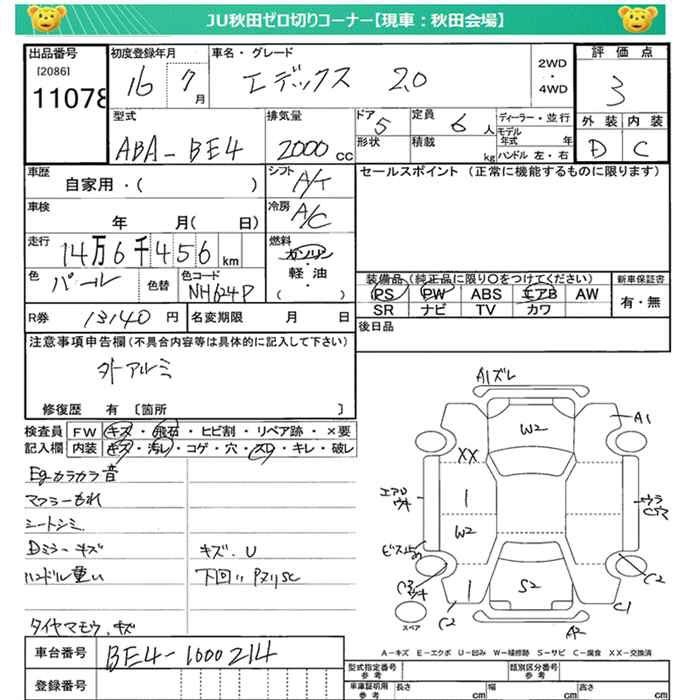 JU秋田ゼロ切りコーナー【現車：秋田会場】
出品番号
[2086]
11078
初度登録年月
16 7月
車名・グレード
エディックス 2,0
2WD
・
4WD
評価点
3
外装 内装
D C
型式
ABA-BE4
排気量
2000cc
ドア
5
形状
定員
6人
積載
kg
ディーラー・並行
モデル年式 年
ハンドル 左・右
車歴
自家用・( )
シフト
A/T
車検
年 月( 日)
冷房
A/C
走行
14万6千456km
燃料
ガソリン
・
軽油
( )
色
パール
色替
色コード
NH624P
R券
13140円
名変期限 月 日
セールスポイント（正常に機能するものに限ります）
装備品（純正品に限り○をつけてください）
PS PW ABS エアB AW
SR ナビ TV カワ
新車保証書
有・無
後日品
注意事項申告欄（不具合内容等は具体的に記入して下さい）
外アルミ
修復歴 有〔箇所 〕
検査員記入欄
FW キズ・飛石・ヒビ割・リペア跡・×要
内装 キズ・汚レ・コゲ・穴・スレ・キレ・破レ
Egカラカラ音
マフラーもれ
シートシミ
Dミラーキズ
ハンドル重い
タイヤマモウ、キズ
キズ、U
下回りPヌリSC
A1ズレ
W2
A1
XX
エアロウキ
W2
C2
S2
C2
C1
A2
スペア
A－キズ E－エクボ U－凹み W－補修跡 S－サビ C－腐食 XX－交換済
車台番号
BE4-1000214
登録番号
型式指定番号 参考
類別区分番号 参考
車庫証明用 参考
長さ cm
幅 cm
高さ cm